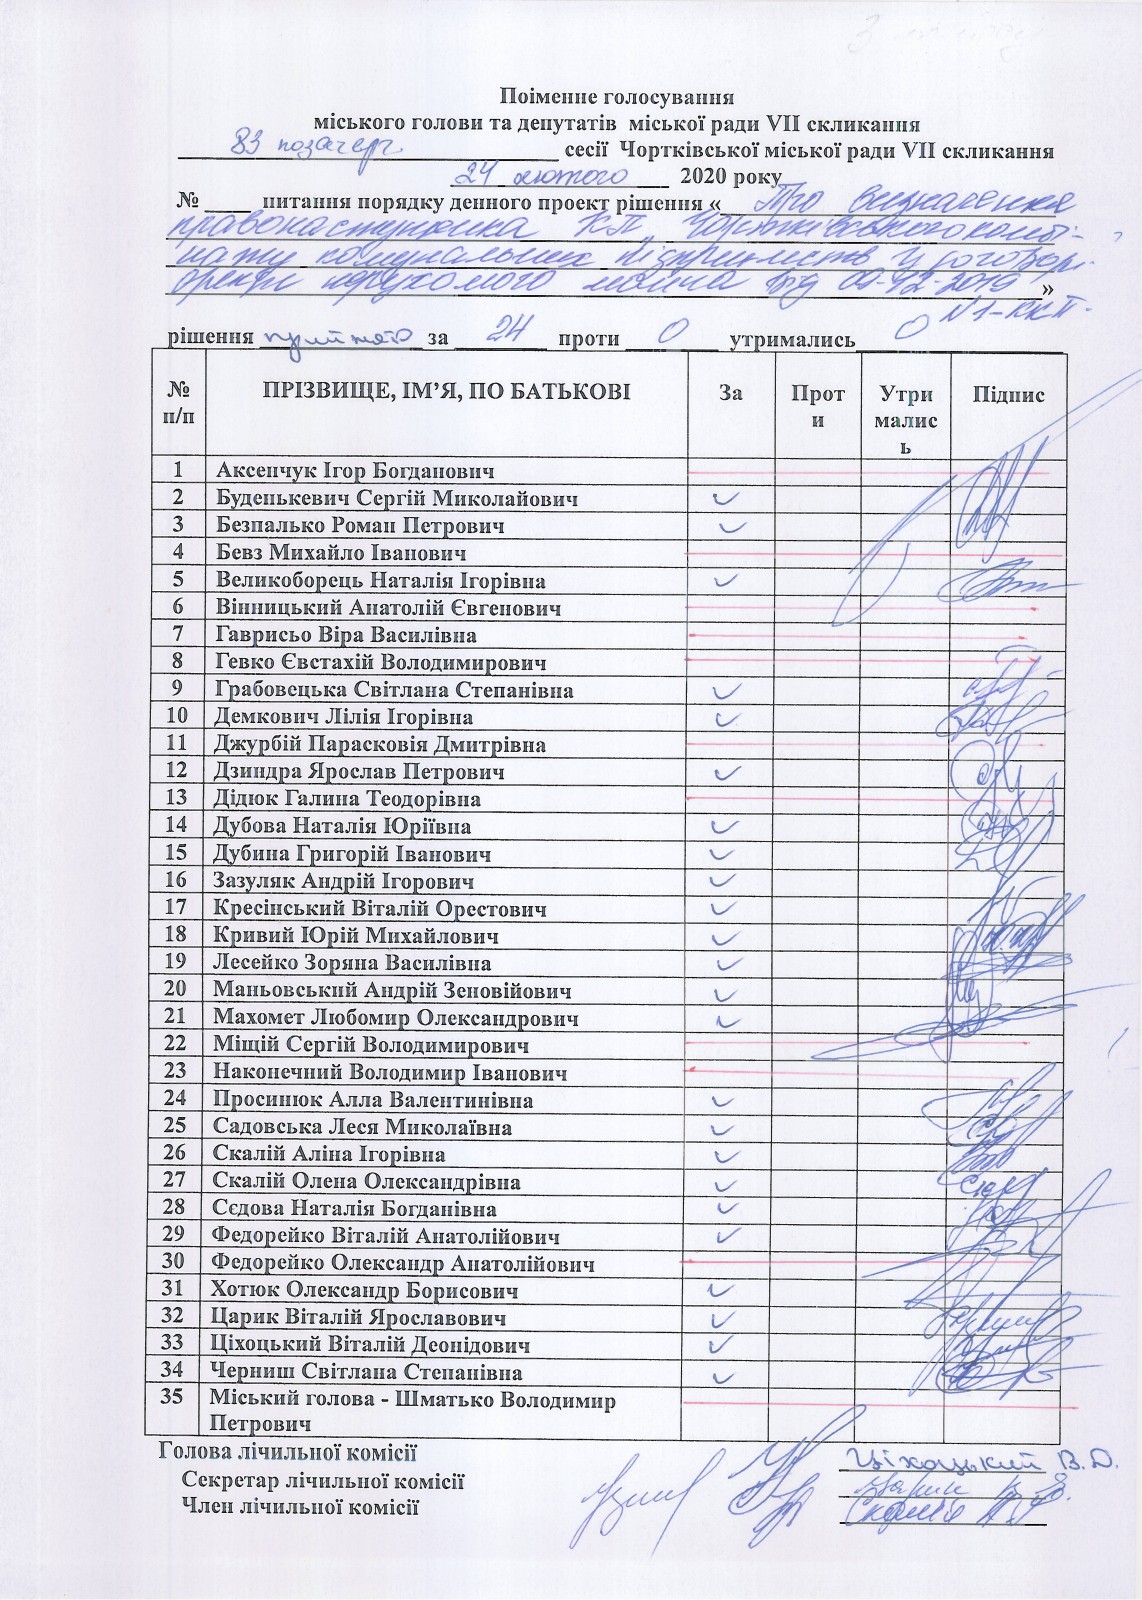 Поіменне голосування
міського голови та депутатів міської ради VII скликання
83 позачерг. сесії Чортківської міської ради VII скликання
24 лютого 2020 року
№ ____ питання порядку денного проект рішення « Про визначення
правонаступника КП "Чортківського комбі-
нату комунальних підприємств" у договорі
оренди нерухомого майна від 09.12.2019 »
№1-ККП.
рішення прийнято за 24 проти 0 утримались 0
№ п/п ПРІЗВИЩЕ, ІМ’Я, ПО БАТЬКОВІ За Проти Утрималис…ь Підпис
1 Аксенчук Ігор Богданович
2 Буденькевич Сергій Миколайович
3 Безпалько Роман Петрович
4 Бевз Михайло Іванович
5 Великоборець Наталія Ігорівна
6 Вінницький Анатолій Євгенович
7 Гаврисьо Віра Василівна
8 Гевко Євстахій Володимирович
9 Грабовецька Світлана Степанівна
10 Демкович Лілія Ігорівна
11 Джурбій Парасковія Дмитрівна
12 Дзиндра Ярослав Петрович
13 Дідюк Галина Теодорівна
14 Дубова Наталія Юріївна
15 Дубина Григорій Іванович
16 Зазуляк Андрій Ігорович
17 Кресінський Віталій Орестович
18 Кривий Юрій Михайлович
19 Лесейко Зоряна Василівна
20 Маньовський Андрій Зеновійович
21 Махомет Любомир Олександрович
22 Міщій Сергій Володимирович
23 Наконечний Володимир Іванович
24 Просинюк Алла Валентинівна
25 Садовська Леся Миколаївна
26 Скалій Аліна Ігорівна
27 Скалій Олена Олександрівна
28 Сєдова Наталія Богданівна
29 Федорейко Віталій Анатолійович
30 Федорейко Олександр Анатолійович
31 Хотюк Олександр Борисович
32 Царик Віталій Ярославович
33 Ціхоцький Віталій Деонідович
34 Черниш Світлана Степанівна
35 Міський голова - Шматько Володимир
Петрович
Голова лічильної комісії Ціхоцький В.Д.
Секретар лічильної комісії Царик В.Я.
Член лічильної комісії